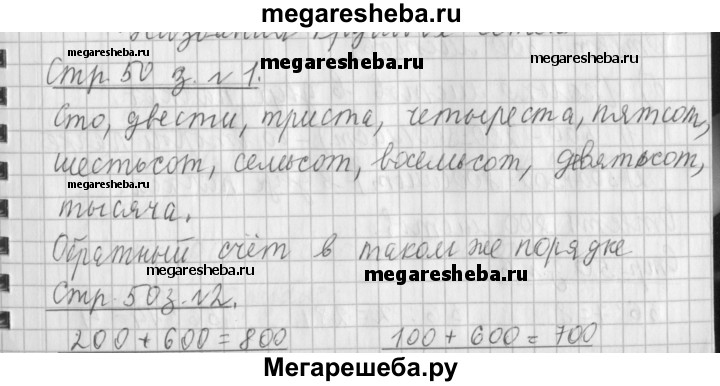 megaresheba.ru
Названия круглых сотен
megaresheba.ru
Стр. 50 з. №1. megaresheba.ru
Сто, двести, триста, четыреста, пятсот,
шестьсот, семьсот, восемьсот, девятьсот,
megaresheba.ru
тысяча.
Обратный счёт в таком же порядке
megaresheba.ru megaresheba.ru
Стр. 50 з. №2.
200 + 600 = 800 100 + 600 = 700
Мегарешеба.ру